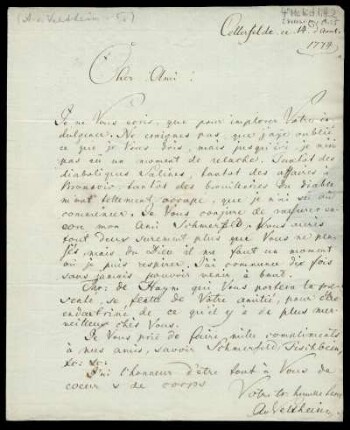 (A. v. Veltheim
Cellerfelde, ce 14. d'aout
1779.
Cher Ami!
Je ne Vous ecris, que pour implorer Votre in
dulgence. Ne craignes pas, que j'aye oublié
ce que je Vous dois, mais jusqu'ici je n'ai
pas eu un moment de relache. Tantot des
diaboliques Salines, tantot des affaires à
Bronsvic, tantot des du Diable
m'ont tellement occupé, que je n'ai sû où
commencer. Je Vous conjure de r'assurer
mon Ami Schmerfeld. Vous m'aies
tout deux surement plus que Vous ne pen
sés, mais du Dieu il me faut un moment
où je puis respirer. J'ai commencé dix fois
sans jamais pouvoir venir à bout.
Mr: de Haym qui Vous portera la pre
sente, se fente de Votre amitié, pour être
endoctriné de ce qu'il y a de plus mer-
veilleux chés Vous.
Je Vous prie de faire mille complimens
à mes amis, savoir Schmerfeld, Tischbein,
J'ai l'honneur d'être tout à Vous de
coeur & de corps
Votre tr. humble
AvVeltheim